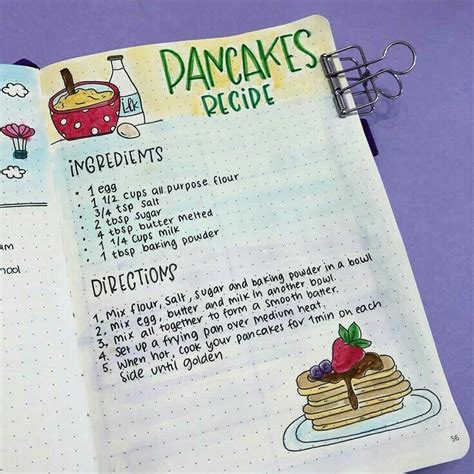 PANCAKES
RECIPE
Milk
INGREDIENTS
• 1 egg
• 1 1/2 cups all purpose flour
• 3/4 tsp salt
• 2 tbsp sugar
• 4 tbsp butter melted
• 1 1/4 cups milk
• 1 tbsp baking powder
DIRECTIONS
1. Mix flour, salt, sugar and baking powder in a bowl
2. mix egg, butter and milk in another bowl.
3. mix all together to form a smooth batter.
4. Set up a frying pan over medium heat.
5. When hot, cook your pancakes for 1min on each
side until golden
56